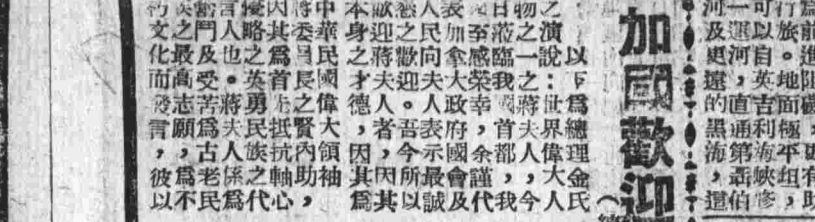 爲前進阻礙，因有助
行旅。地面極平坦，
可以自英吉利海峽修
一運河，直通第聶伯
河及更遠的黑海，這
加國歡迎
以下爲總理金氏
之演說：世界偉大人
物之一之蔣夫人，今
日蒞臨我國首都，我
至感榮幸，余謹代
表加拿大政府國會及
人民向夫人表示最誠
懇之歡迎。吾今所以
歡迎蔣夫人者，因其
本身之才德，因其爲
中華民國偉大領袖
蔣委員長之賢內助，
因其爲首先抵抗軸心
侵略之英勇民族之代
言人也。蔣夫人係爲
奮鬥及受苦爲古老民
族之最高志願，爲不
朽文化而發言，彼以